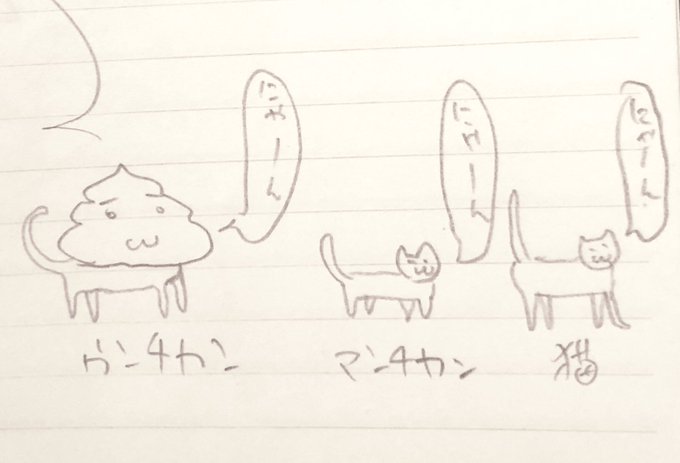 にゃーん
にゃーん
にゃーん
ウンチカン
マンチカン
猫